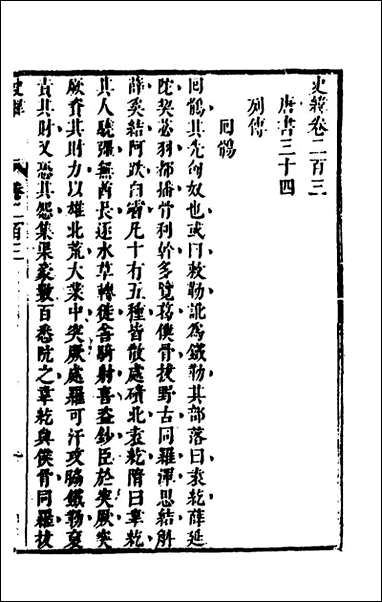 史緯卷二百三
唐書三十四
列傳
回鶻
回鶻其先匈奴也或曰敕勒訛為鐵勒其部落曰袁紇薛延
陀契苾羽都播骨利幹多覽葛僕骨拔野古同羅渾思結斛
薛奚結阿跌白霫凡十有五種皆散處磧北袁紇隋曰韋紇
其人驍彊無酋長逐水草轉徙善騎射喜盜鈔臣於突厥突
厥資其財力以雄北荒大業中突厥處羅可汗攻脇鐵勒裒
責其財又恐其怨集渠豪數百悉阬之韋紇與僕骨同羅拔
史緯
卷二百三